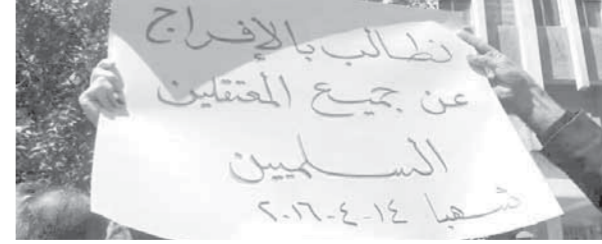 نطالب بالإفراج
عن جميع المعتقلين
السلميين
شهبا ١٤-٤-٢٠١٦